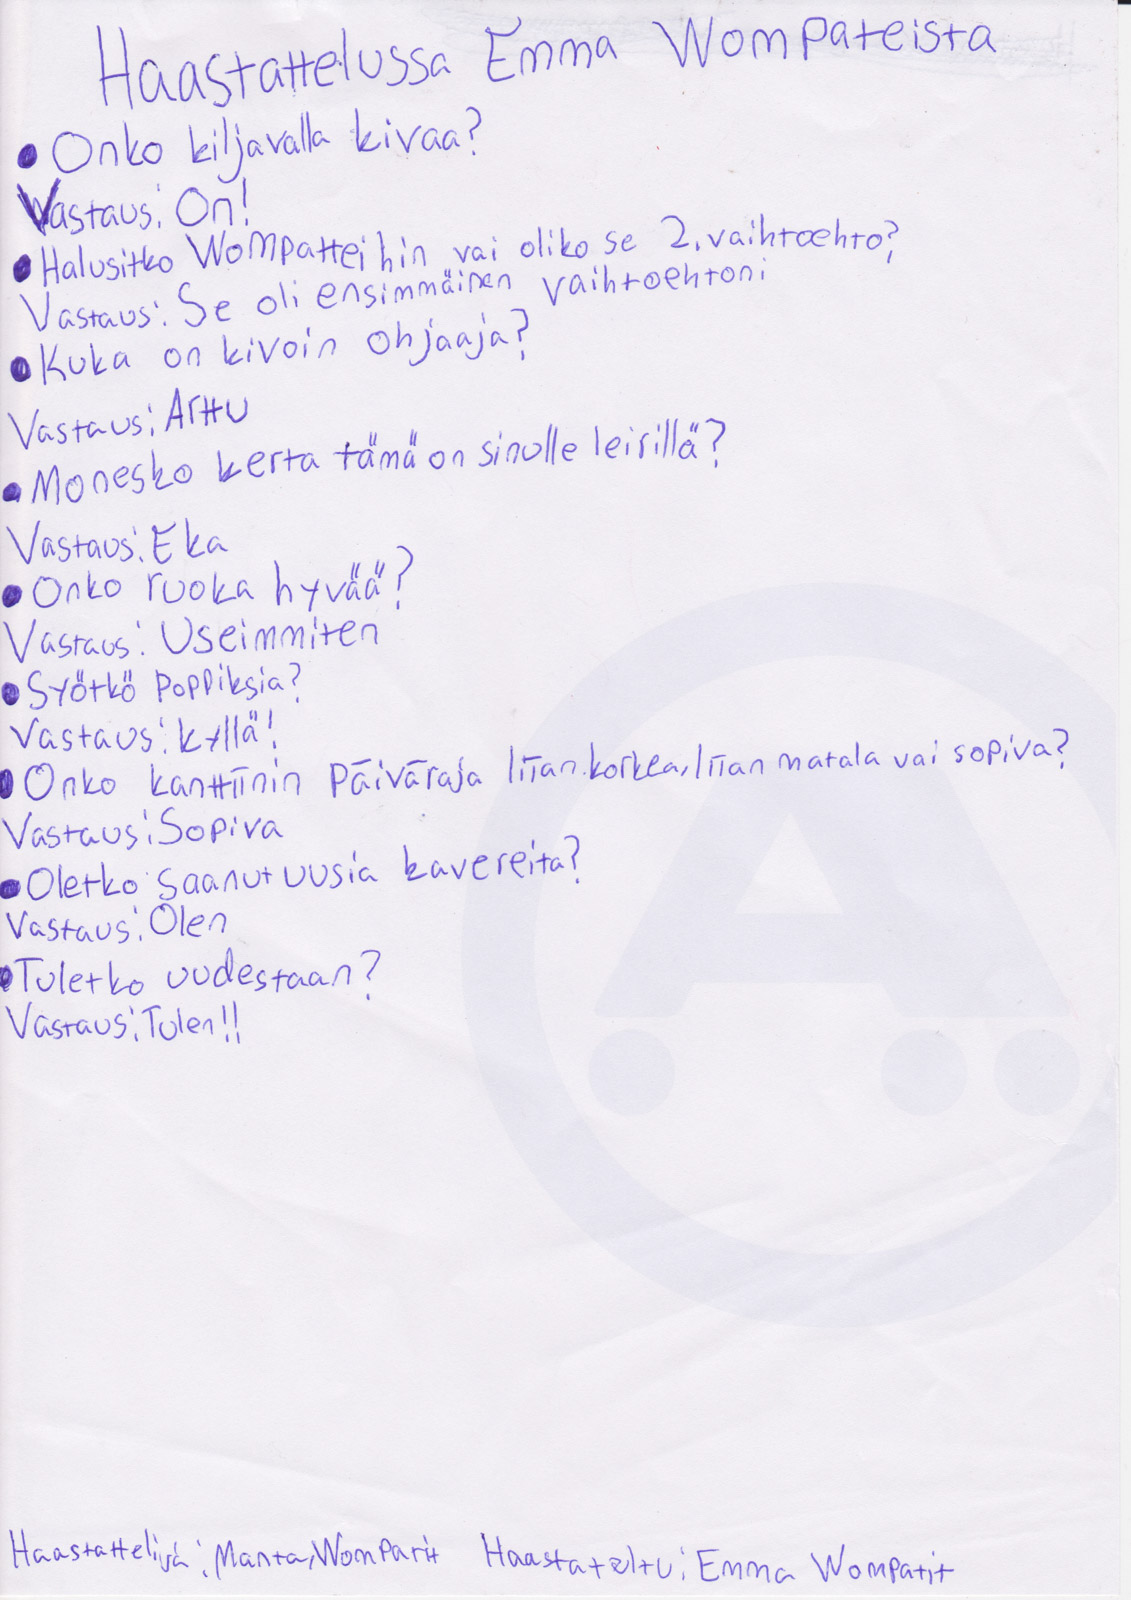 Haastattelussa Emma Wompateista
• Onko kiljavalla kivaa?
Vastaus: On!
• Halusitko Wompatteihin vai oliko se 2. vaihtoehto?
Vastaus: Se oli ensimmäinen vaihtoehtoni
• Kuka on kivoin ohjaaja?
Vastaus: Arttu
• Monesko kerta tämä on sinulle leirillä?
Vastaus: Eka
• Onko ruoka hyvää?
Vastaus: Useimmiten
• Syötkö poppiksia?
Vastaus: kyllä!
• Onko kanttiinin päiväraja liian korkea, liian matala vai sopiva?
Vastaus: Sopiva
• Oletko saanut uusia kavereita?
Vastaus: Olen
• Tuletko uudestaan?
Vastaus: Tulen!!
Haastattelija: Manta, Wompatit Haastateltu: Emma Wompatit
A